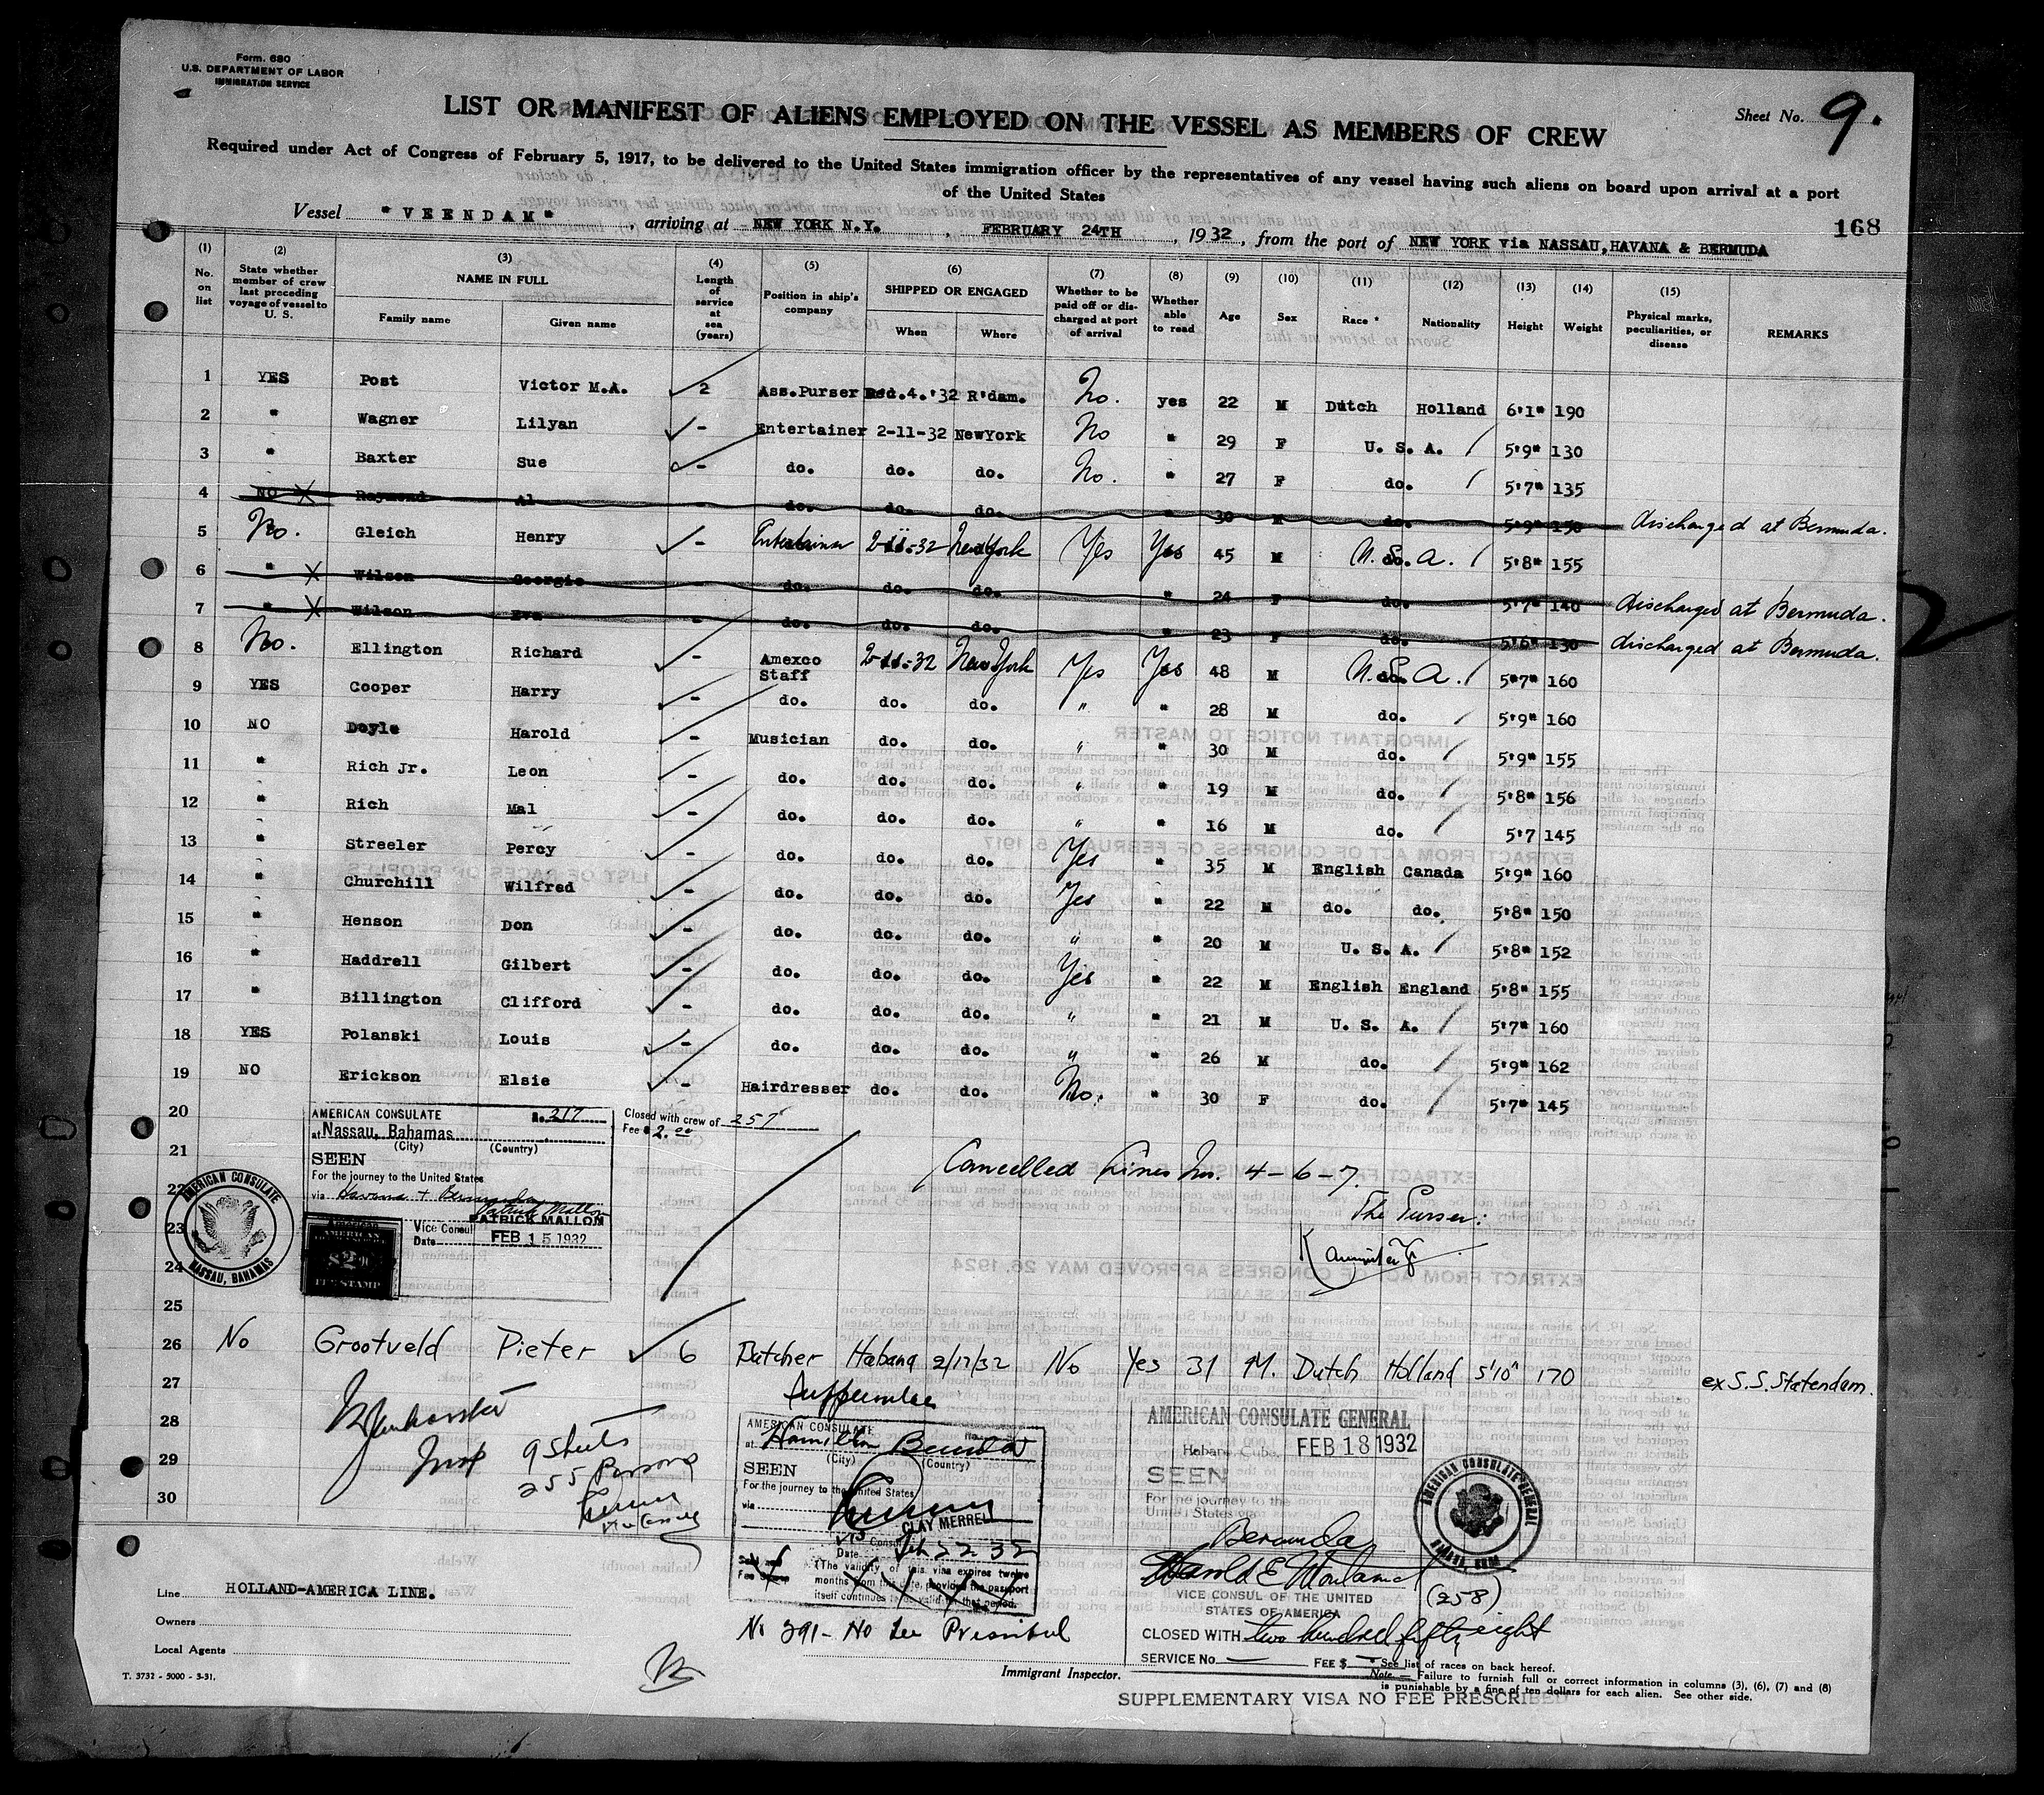 Form. 680
U.S. DEPARTMENT OF LABOR
IMMIGRATION SERVICE
LIST OR MANIFEST OF ALIENS EMPLOYED ON THE VESSEL AS MEMBERS OF CREW
Sheet No. 9.
Required under Act of Congress of February 5, 1917, to be delivered to the United States immigration officer by the representatives of any vessel having such aliens on board upon arrival at a port
of the United States
168
Vessel "VEENDAM", arriving at NEW YORK N.Y., FEBRUARY 24TH, 1932, from the port of NEW YORK via NASSAU, HAVANA & BERMUDA
(1) No. on list
(2) State whether member of crew last preceding voyage of vessel to U. S.
(3) NAME IN FULL Family name Given name
(4) Length of service at sea (years)
(5) Position in ship's company
(6) SHIPPED OR ENGAGED When Where
(7) Whether to be paid off or discharged at port of arrival
(8) Whether able to read
(9) Age
(10) Sex
(11) Race *
(12) Nationality
(13) Height
(14) Weight
(15) Physical marks, peculiarities, or disease
REMARKS
1 YES Post Victor M.A. 2 Ass.Purser Dec.4.'32 R'dam. No. yes 22 M Dutch Holland 6'1" 190
2 " Wagner Lilyan - Entertainer 2-11-32 NewYork No " 29 F U. S. A. 5'9" 130
3 " Baxter Sue - do. do. do. No. " 27 F do. 5'7" 135
4 NO X Raymond Al - do. do. do. " 30 M do. 5'9" 150 discharged at Bermuda.
5 No. Gleich Henry - Entertainer 2-11-32 New York Yes Yes 45 M U.S.A. 5'8" 155
6 " X Wilson Georgie - do. do. do. " 24 F do. 5'7" 140 discharged at Bermuda.
7 " X Wilson Eva - do. do. do. " 23 F do. 5'6" 130 discharged at Bermuda.
8 No. Ellington Richard - Amexco Staff 2-11-32 New York Yes Yes 48 M U.S.A. 5"7" 160
9 YES Cooper Harry - do. do. do. " " 28 M do. 5'9" 160
10 NO Doyle Harold - Musician do. do. " " 30 M do. 5'9" 155
11 " Rich Jr. Leon - do. do. do. " " 19 M do. 5'8" 156
12 " Rich Mal - do. do. do. " " 16 M do. 5'7 145
13 " Streeler Percy - do. do. do. Yes " 35 M English Canada 5'9" 160
14 " Churchill Wilfred - do. do. do. Yes " 22 M do. do. 5'8" 150
15 " Henson Don - do. do. do. " " 20 M U. S. A. 5'8" 152
16 " Haddrell Gilbert - do. do. do. Yes " 22 M English England 5'8" 155
17 " Billington Clifford - do. do. do. " " 21 M U. S. A. 5'7" 160
18 YES Polanski Louis - do. do. do. " " 26 M do. 5'9" 162
19 NO Erickson Elsie - Hairdresser do. do. No. " 30 F do. 5'7" 145
20
21
22
23
24
25
AMERICAN CONSULATE No. 217
at Nassau, Bahamas
(City) (Country)
SEEN
For the journey to the United States
via Havana + Bermuda
Patrick Mallon
PATRICK MALLON
Vice Consul
Date FEB 15 1932
Closed with crew of 257
Fee $ 2.00
AMERICAN CONSULATE
NASSAU, BAHAMAS
AMERICAN
$2
FEE STAMP
Cancelled Lines No. 4-6-7.
The Purser:
26 No Grootveld Pieter 6 Butcher Habana 2/17/32 No Yes 31 M. Dutch Holland 5'10" 170 ex S.S. Statendam.
27
28
29
30
9 sheets
255 persons
AMERICAN CONSULATE
at Hamilton Bermuda
(City) (Country)
SEEN
For the journey to the United States
via
CLAY MERRELL
Vice Consul
Date Feb 22 32
(The validity of this visa expires twelve
months from this date, provided the passport
itself continues to be valid for that period.
No 291- No fee Prescribed
AMERICAN CONSULATE GENERAL
Habana, Cuba. FEB 18 1932
SEEN
For the journey to the
United States via
Bermuda
VICE CONSUL OF THE UNITED
STATES OF AMERICA
(258)
CLOSED WITH two hundred fifty eight
SERVICE No. — FEE $ —
SUPPLEMENTARY VISA NO FEE PRESCRIBED
AMERICAN CONSULATE GENERAL
HABANA, CUBA
Line HOLLAND-AMERICA LINE.
Owners
Local Agents
T. 3732 - 5000 - 3-31.
Immigrant Inspector.
* See list of races on back hereof.
Note.—Failure to furnish full or correct information in columns (3), (6), (7) and (8)
is punishable by a fine of ten dollars for each alien. See other side.